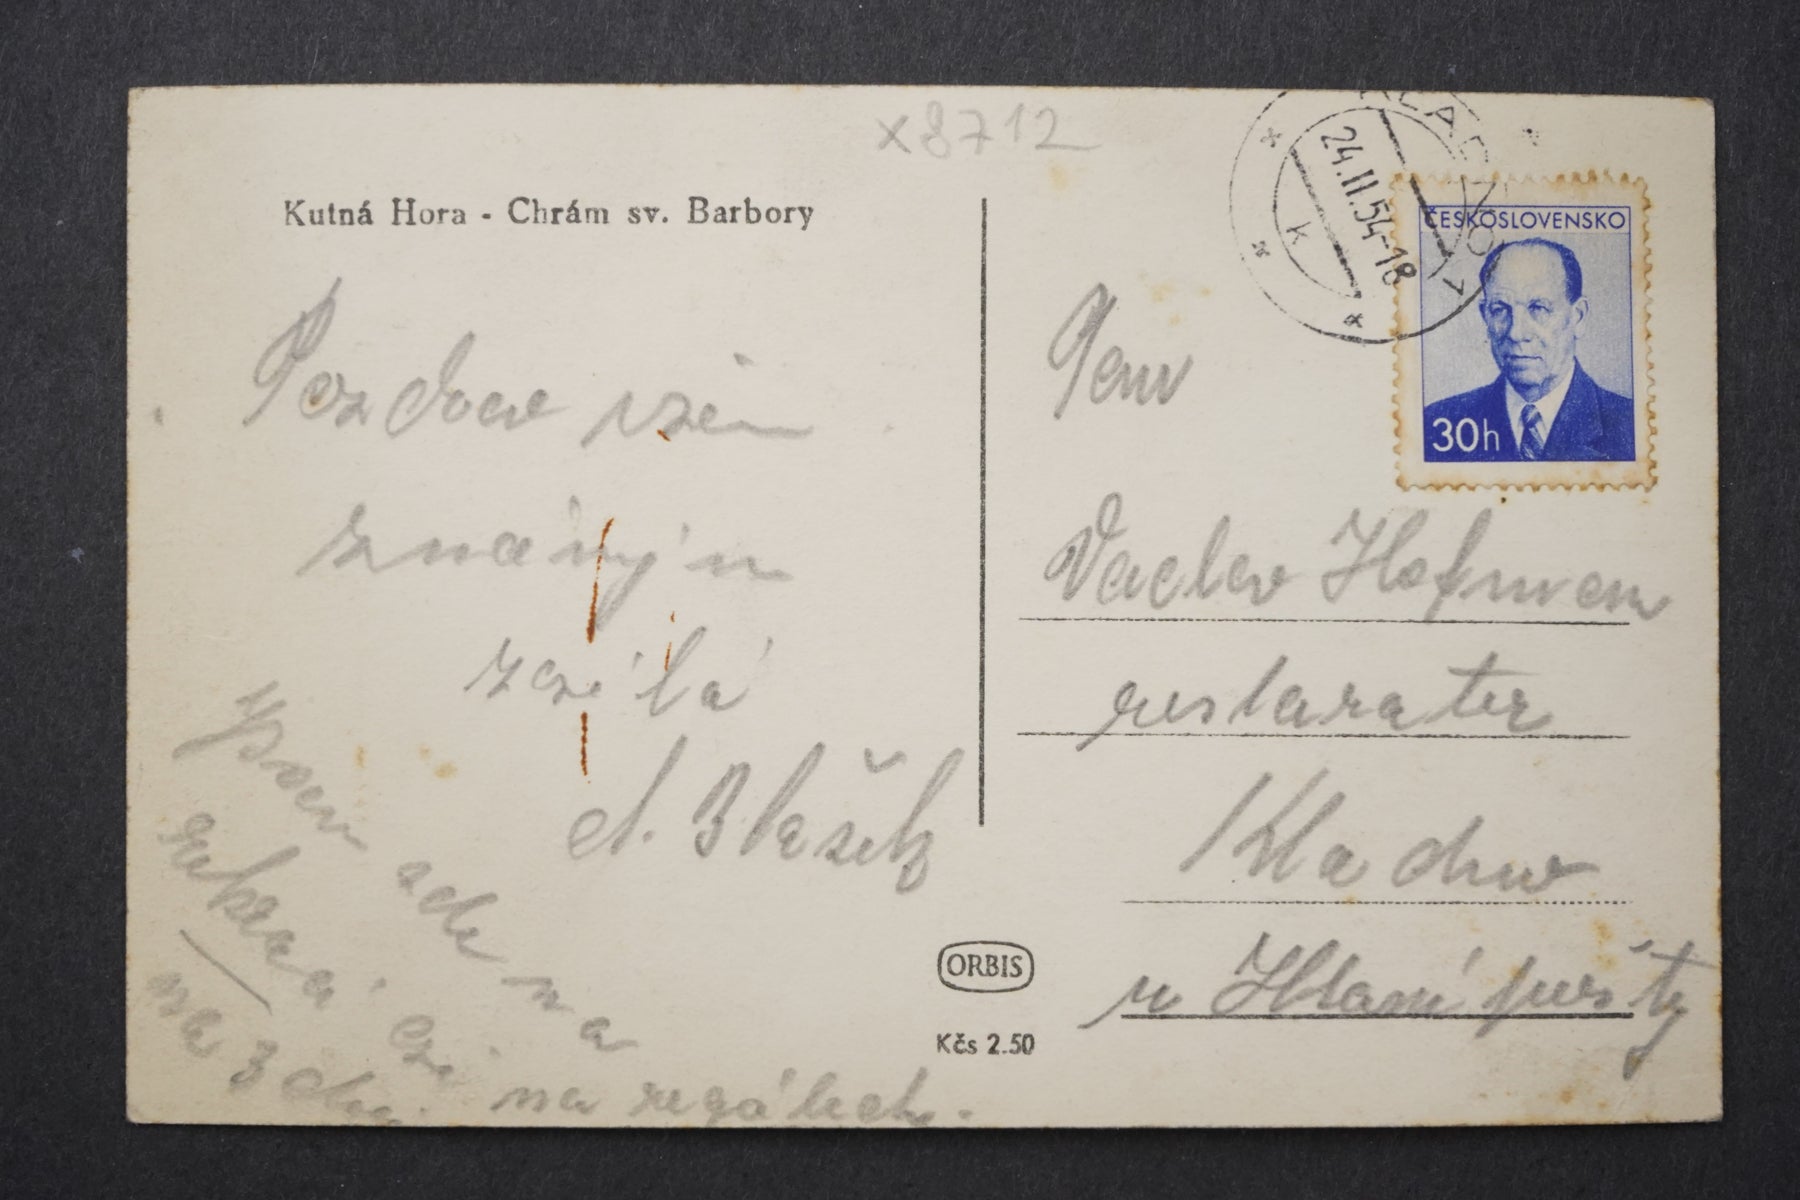 x8712
Kutná Hora - Chrám sv. Barbory
24.II.54-18
k
1
ČESKOSLOVENSKO
30h
Pozdrav všem
známým
zasílá
A. Blažek
Jsem zde na
na 3 dny.
na regálech.
Pan
Vaclav Hofman
Kladno
u Hlavní pošty
ORBIS
Kčs 2.50